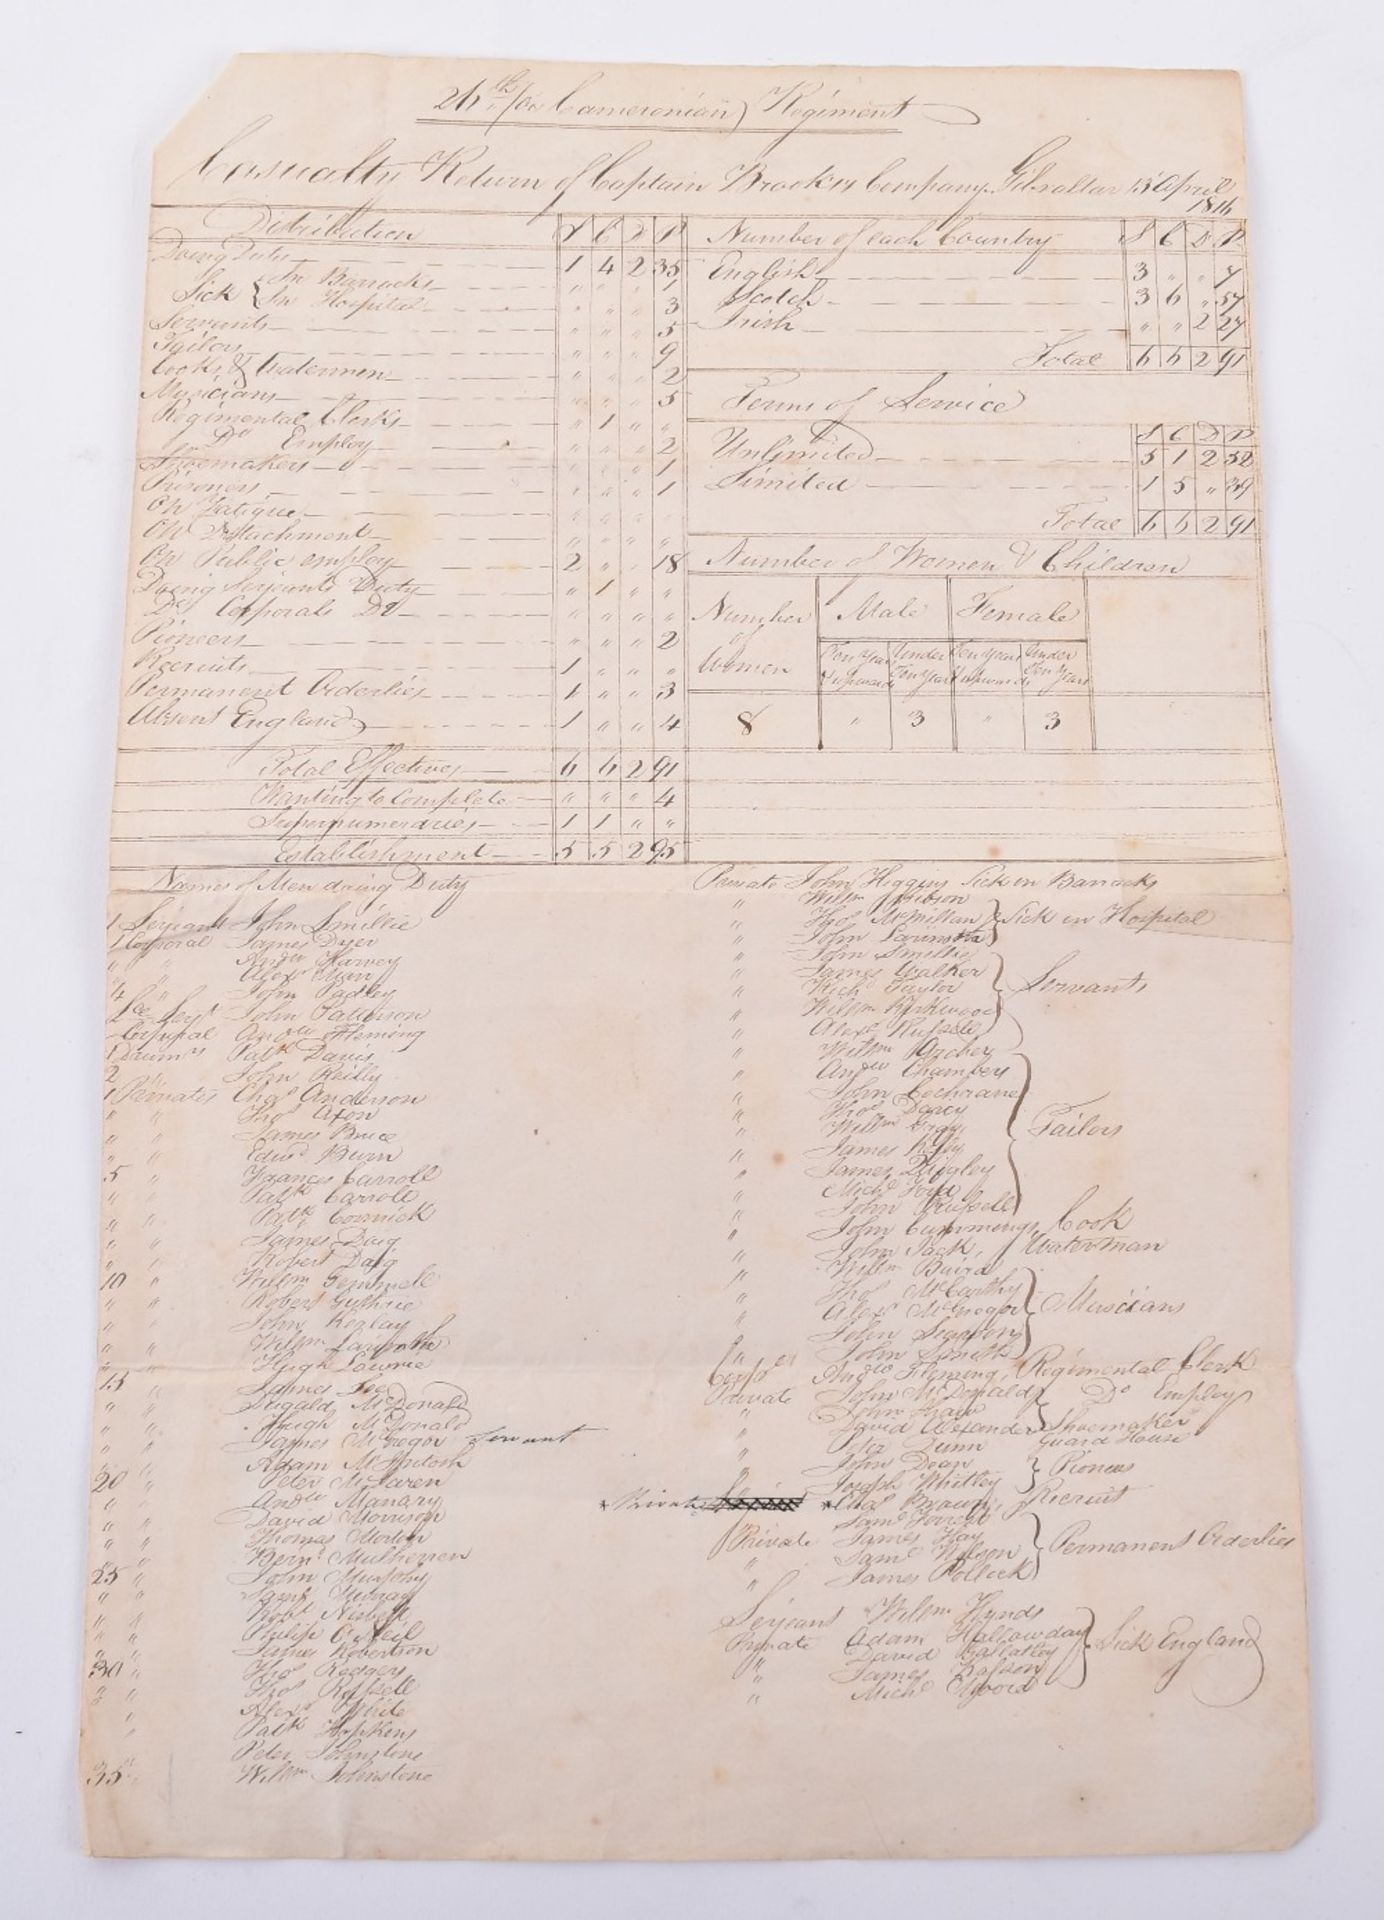 26th /or Cameronian/ Regiment
Casualty Return of Captain Company Gibraltar 15 April
1816
Distribution S C D P
Doing Duty 1 4 2 35
Sick { In Barracks " " " 1
In Hospital " " " 3
Servants " " " 5
Tailors " " " 9
Cooks & Watermen " " " 2
Musicians " " " 5
Regimental Clerks " 1 " "
Do Employ " " " 2
Shoemakers " " " 1
Prisoners " " " 1
On Fatigue " " " "
On Detachment " " " "
On Public employ 2 " " 18
Doing Serjeants Duty " 1 " "
Do Corporals Do " " " "
Pioneers " " " 2
Recruits 1 " " "
Permanent Orderlies 1 " " 3
Absent England 1 " " 4
Total Effectives 6 6 2 91
Wanting to Complete " " " 4
Supernumeraries 1 1 " "
Establishment 5 5 2 95
Number of each Country S C D P
English 3 " " 7
Scotch 3 6 " 57
Irish " " 2 27
Total 6 6 2 91
Terms of Service
S C D P
Unlimited 5 1 2 52
Limited 1 5 " 39
Total 6 6 2 91
Number of Women & Children
Number of Women Male Female
Ten Years & upwards Under Ten Years Ten Years & upwards Under Ten Years
8 " 3 " 3
Names of Men doing Duty
1 Serjeant John Smillie
1 Corporal James Dyer
" " Andw Harvey
" " Alexr Muir
4 " John Padley
Lce Serjt John Patterson
Corporal Andw Fleming
1 Drumrs Patk Davis
2 " John Reilly
1 Privates Chas Anderson
" " Thos Axon
" " James Bruce
" " Edwd Burn
5 " Frances Carroll
" " Patk Carroll
" " Patk Cormick
" " James Daig
" " Robert Daig
10 " Willm Gemmell
" " Robert Guthrie
" " John Kealay
" " Willm
" " Hugh Lowrie
15 " James Lee
" " Dugald McDonald
" " Hugh McDonald
" " James McGregor Servant
" " Adam
20 " Peter McLaren
" " Andw Manary
" " David Morrison
" " Thomas Morton
" " Bernd Mulherren
25 " John Murphy
" " Saml Murray
" " Robt Nisbett
" " Philip O'Neil
" " James Robertson
30 " Thos Rodgers
" " Thos Russell
" Alexr White
" Patk Hopkins
Peter Johnstone
35 " Willm Johnstone
Private John Higgins Sick in Barracks
" Willm Gibson
" Thos McMillan } Sick in Hospital
" John
" John Smillie
" James Walker
" Richd Taylor } Servants
" Willm Kirkwood
" Alexr Russell
" Willm Archer
" Andw Chambers
" John Cochrane
" Thos Darcy
" Willm Gray } Tailors
" James Kelly
" James Quigley
" Michl Ford
" John Russell
" John Cummings, Cook
" John Jack, Waterman
" Willm Baird
" Thos McCarthy
" Alexr McGregor } Musicians
" John
" John Smith
Corpol Andw Fleming, Regimental Clerk
Private John McDonald } Do Employ
" John Shaw
" David Alexander Shoemaker
" Peter Dunn Guard House
" John Dean } Pioneers
" Joseph Whitley
* Private * Chas Brown, Recruit
Saml Forrest
Private James Hay
" Saml Wilson } Permanent Orderlies
" James Pollock
Serjeant Willm Hynds
Private Adam Hallowday
" David } Sick England
" James
" Michl